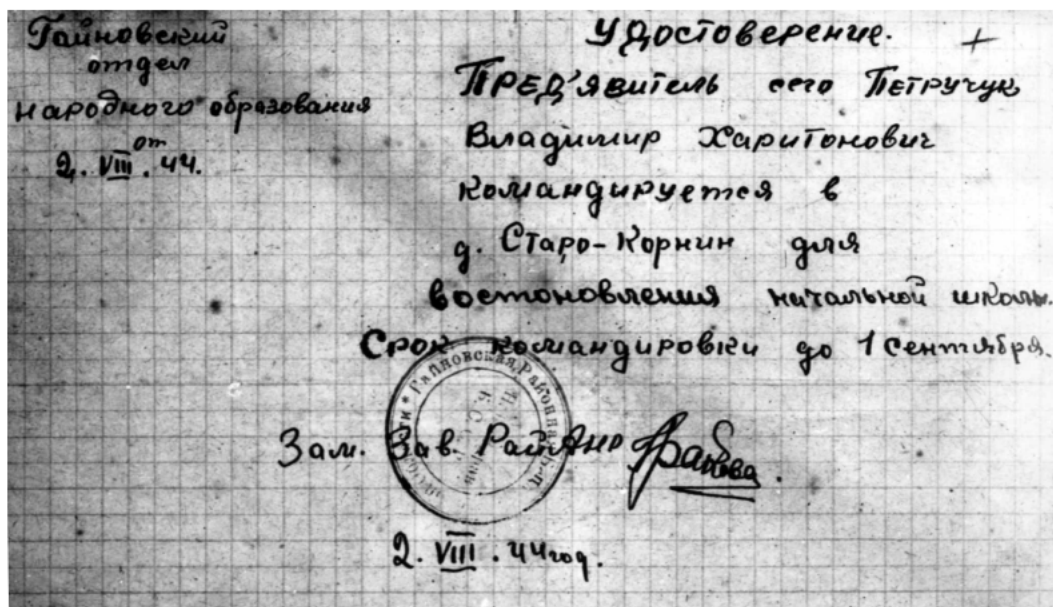 Гайновский
отдел
народного образования
от
2. VIII. 44.
Удостоверение.
Пред'явитель сего Петручук
Владимир Харитонович
командируется в
д. Старо-Корнин для
востоновления начальной школы.
Срок командировки до 1 сентября.
Гайновская Районная
Зам. Зав. РайАно
2. VIII. 44 год.